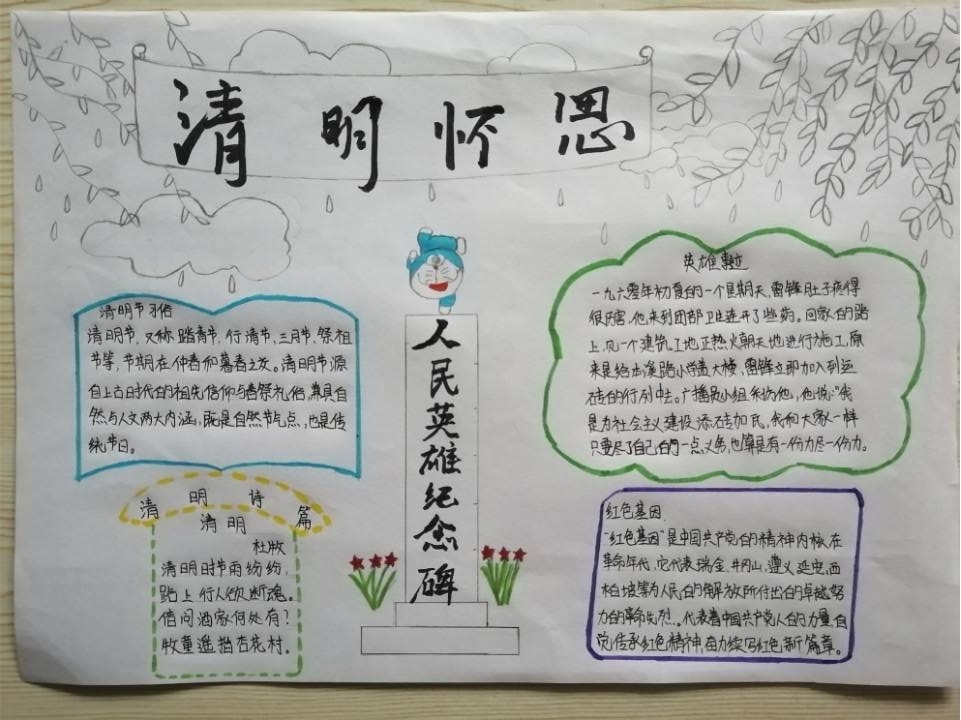 清明怀思
清明节习俗
清明节,又称踏青节,行清节,三月节,祭祖
节等,节期在仲春和暮春之交。清明节源
自上古时代的祖先信仰与春祭礼俗,兼具自
然与人文两大内涵,既是自然节气点,也是传
统节日。
清明诗篇
清明
杜牧
清明时节雨纷纷,
路上行人欲断魂。
借问酒家何处有?
牧童遥指杏花村。
人民英雄纪念碑
英雄事迹
一九六零年初夏的一个星期天,雷锋肚子疼得
很厉害,他来到团部卫生连开了些药。回家的路
上,见一个建筑工地正热火朝天地进行施工,原
来是给本溪路小学盖大楼,雷锋立即加入到运
砖的行列中去。广播员小组采访他,他说:“我
是为社会主义建设添砖加瓦,我和大家一样
只要尽了自己的一点义务,也算是有一份力尽一份力。
红色基因
“红色基因”是中国共产党的精神内核,在
革命年代,它代表瑞金,井冈山,遵义,延安,西
柏坡等为人民的解放所付出的卓越努
力的革命先烈。代表着中国共产党人的力量,自
觉传承红色精神,奋力续写红色新篇章。